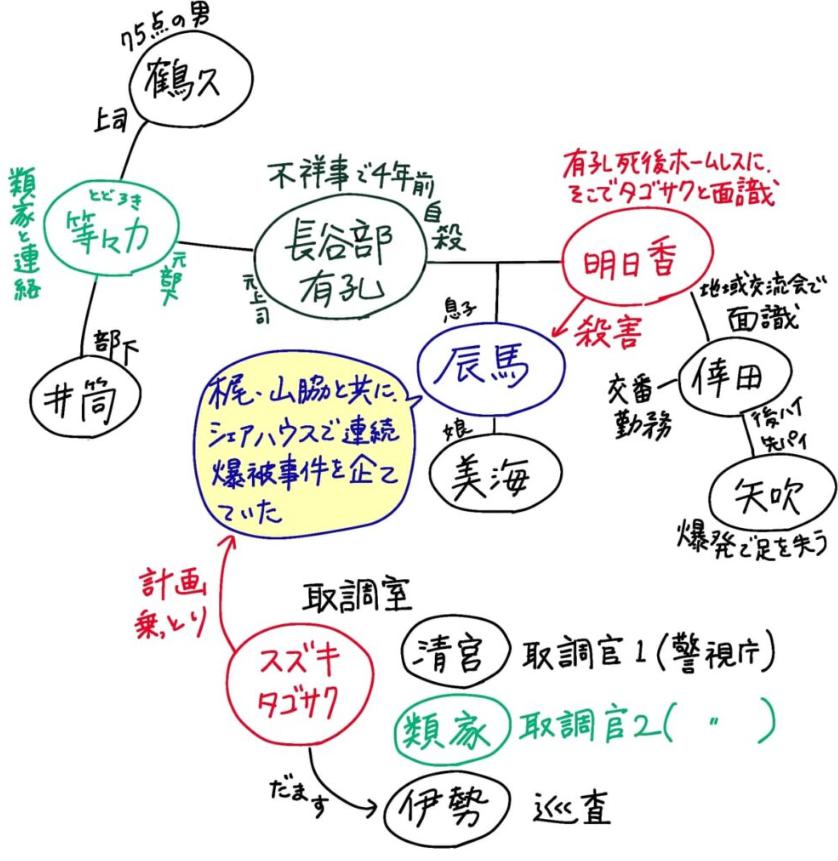 75点の男
鶴久
上司
とどろき
等々力
類家と連絡
元部下
部下
井筒
不祥事で4年前
自殺
長谷部
有孔
元上司
有孔死後ホームレスに、
そこでタゴサクと面識
明日香
殺害
地域交流会で
面識
倖田
交番
勤務
後ハイ
先パイ
矢吹
爆発で足を失う
息子
辰馬
娘
美海
梶、山脇と共に、
シェアハウスで連続
爆被事件を企て
ていた
計画
乗っとり
取調室
スズキ
タゴサク
清宮 取調官1(警視庁)
類家 取調官2( 〃 )
だます
伊勢 巡査